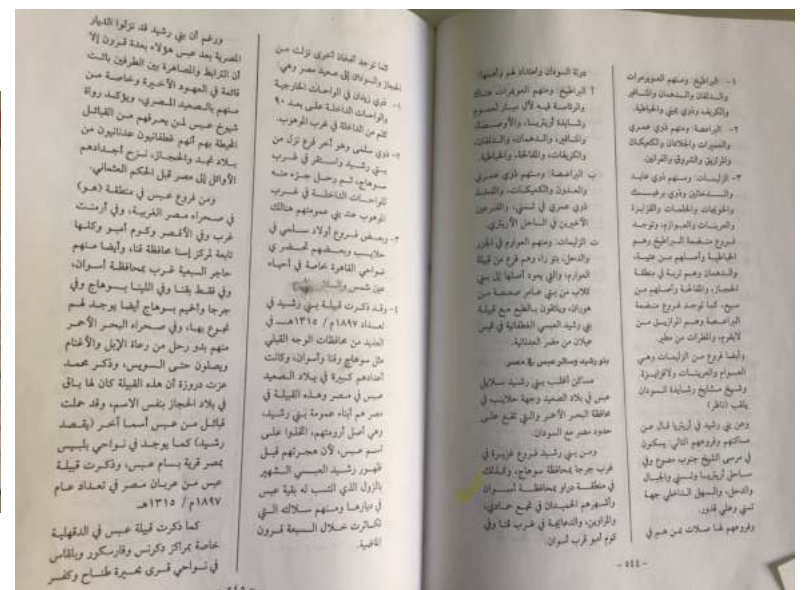 ١- البراطيخ: ومنهم العويمرات
والدلقان والدهمان والمنافير
والكريف، وذوي جميّ والحباطية.
٢- البراعصة: ومنهم ذوي عمري
والعميرات والجلادان والكعيكان
والمرازيق والشروق والقزاين
٣- الزليمات: ومنهم ذوي عايد
والدغانين وذوي برغيث
والحويجات والجلسات والقزايزة
والعرينات والعوازم، وتوجد
فروع منضمة البراطيخ وهم
الحباطية وأصلهم من عتيبة،
والدهمان وهم تربة في منطقة
الحجاز، والمقالحة وأصلهم من
سبيع، كما توجد فروع منضمة
البراعصة وهم المرازيق من
لايقوم، والفطرات من مطير
وأيضا فروع من الزليمات وهي
العوازم والعرينات والقزايزة
وشيخ مشايخ رشايدة السودان
يلقب (ناظر)
وعن بني رشيد في أريتريا قال عن
مساكنهم وفروعهم التالي: يسكنون
في مرسى الشيخ جنوب مصوع وفي
ساحل أريتريا ونسي والجبال
والدحل، والسهل الداخلي جهة
تسني وعلي قدور.
وفروعهم لها صلات بمن هم في
دولة السودان وامتداد لهم وأهمها:
أ البراطيخ: ومنهم العويمرات هناك
والرئاسة فيه لآل مبارك لعموم
رشايدة أريتريا، والأوصصة،
والمنافير، والدهمان، والدلقان،
والكريفات، والمقالحة، والحباطية.
ب البراعصة: ومنهم ذوي عمري
والعدون والكعيكات، والقضة
ذوي عمري في تسني، والفرعين
الأخيرين في الساحل الأريتري.
ت الزليمات: ومنهم العوازم في الجزر
والدحل، بنو راء وهم فرع من قبيلة
العوازم، والتي يعود أصلها إلى بني
كلاب من بني عامر صعصعة من
هوزان، ويلتقون بالطبع مع قبيلة
بني رشيد العبسي الغطفانية في قيس
عيلان من مضر العدنانية.
بنو رشيد وسائر عبس في مصر
مساكن أغلب بني رشيد سلايل
عبس في بلاد الصعيد وجهة حلايب في
محافظة البحر الأحمر والتي تقع على
حدود مصر مع السودان.
ومن بني رشيد فروع غزيرة في
غرب جرجا بمحافظة سوهاج، وكذلك
في منطقة دراو بمحافظة أسوان
وأشهرهم الحميدان في نجع حمادي،
والمزاوين، والدعايمة في غرب قنا وفي
كوم أمبو قرب أسوان.
- ٤٤٤ -
كما توجد أفخاذ أخرى نزلت من
الحجاز والسودان إلى صعيد مصر وهي:
١- ذوي زيدان في الواحات الخارجية
والواحات الداخلة على بعد ٩٠
كلم من الداخلة في غرب الموهوب.
٢- ذوي سلمى وهو آخر فرع نزل من
بني رشيد واستقر في غرب
سوهاج، ثم رحل جزء منه
للواحات الداخلة في غرب
الموهوب عند بني عمومتهم هنالك
٣- وبعض فروع أولاد سلمي في
حلايب وبعضهم تحضر في
ضواحي القاهرة خاصة في أحياء
عين شمس
٤- وقد ذكرت قبيلة بني رشيد في
تعداد ١٨٩٧م / ١٣١٥هـ في
العديد من محافظات الوجه القبلي
مثل سوهاج وقنا وأسوان، وكانت
أعدادهم كبيرة في بلاد الصعيد
عبس في مصر وهذه القبيلة في
مصر هم أبناء عمومة بني رشيد،
وهي أصل أرومتهم، اتخذوا على
اسم عبس، لأن هجرتهم قبل
ظهور رشيد العبسي الشهير
بالزول الذي انتسب له بقية عبس
في ديارها ومنهم سلاك التي
تكاثرت خلال السبعة قرون
الماضية.
ورغم أن بني رشيد قد نزلوا الديار
المصرية بعد عبس هؤلاء بعدة قرون إلا
أن الترابط والمصاهرة بين الطرفين باتت
قائمة في العهود الأخيرة وخاصة من
منهم بالصعيد المصري، ويؤكد رواة
شيوخ عبس لمن يعرفهم من القبائل
المحيطة بهم أنهم غطفانيون عدنانيون من
بلاد نجد والحجاز، نزح أجدادهم
الأوائل إلى مصر قبل الحكم العثماني.
ومن فروع عبس في منطقة (هو)
في صحراء مصر الغربية، وفي أرمنت
غرب وفي الأقصر وكوم أمبو وكلها
تابعة لمركز إسنا محافظة قنا، وأيضا منهم
حاجر السبعية غرب بمحافظة أسوان،
وفي فقط بقنا وفي اللينا بسوهاج وفي
جرجا وأخميم بسوهاج أيضا يوجد لهم
نجوع بها، وفي صحراء البحر الأحمر
منهم بدو رحل من رعاة الإبل والأغنام
ويصلون حتى السويس، وذكر محمد
عزت دروزة أن هذه القبيلة كان لها باق
في بلاد الحجاز بنفس الاسم، وقد حملت
قبائل من عبس أسما آخر (يقصد
رشيد) كما يوجد في نواحي بلبيس
بمصر قرية بسام عبس، وذكرت قبيلة
عبس من عربان مصر في تعداد عام
١٨٩٧م / ١٣١٥هـ
كما ذكرت قبيلة عبس في الدقهلية
خاصة بمراكز دكرنس وفارسكور وبلقاس
في نواحي قرى بحيرة طناح وكفر